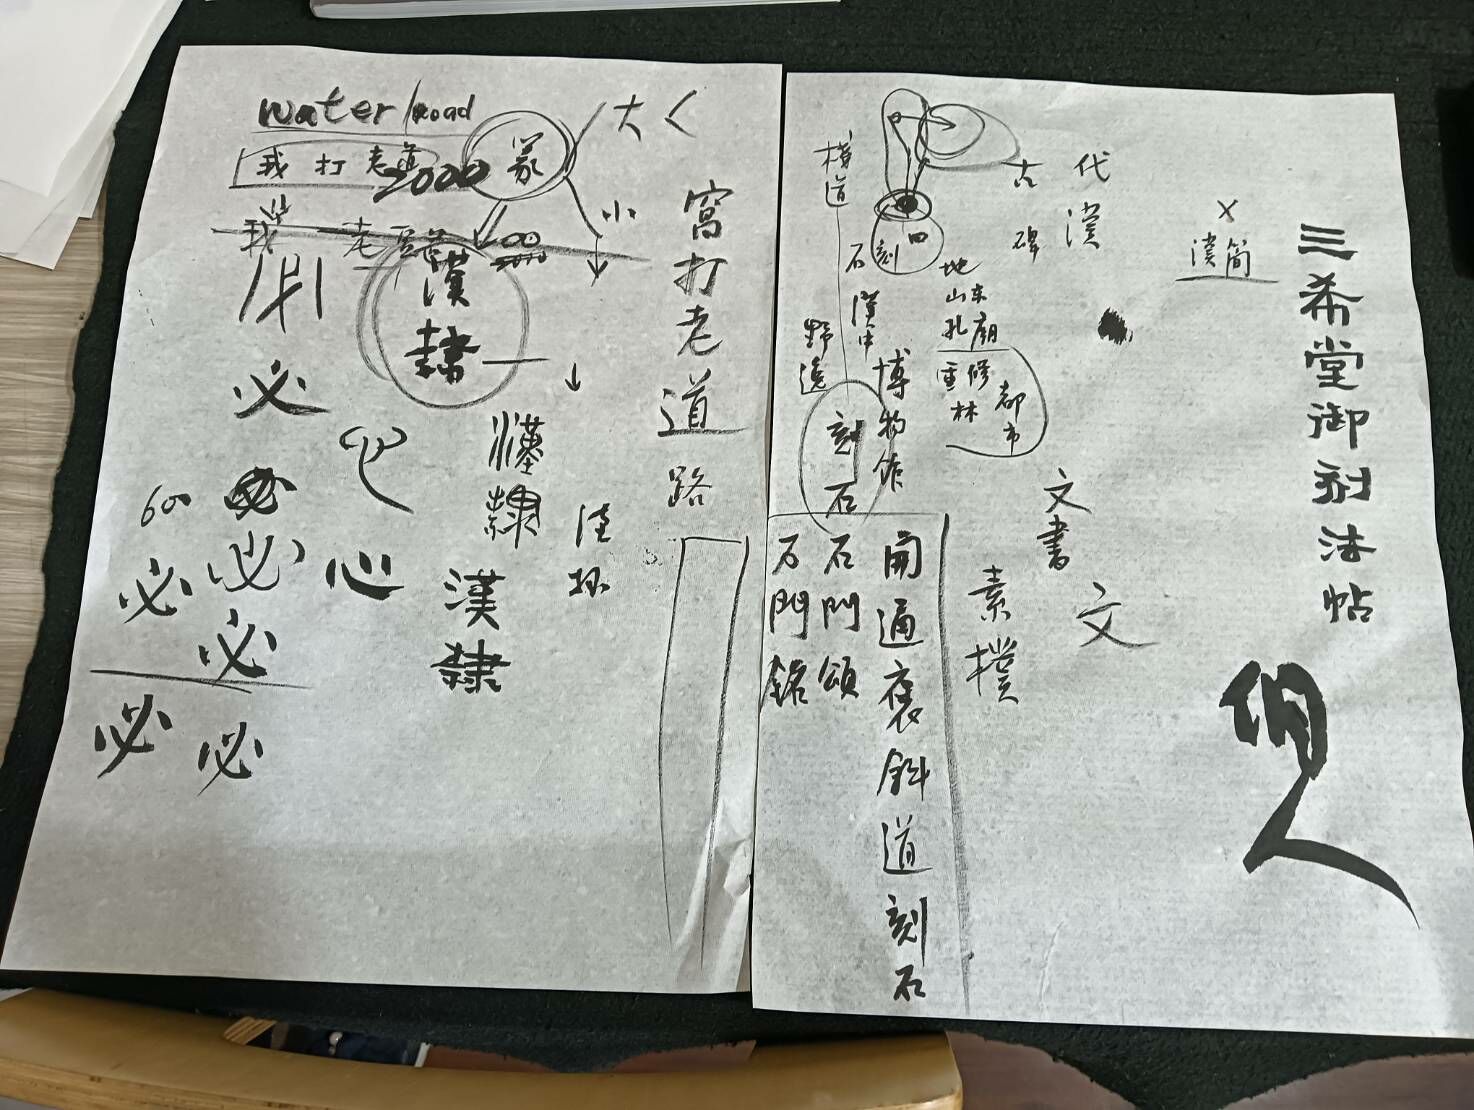 water/road
我打老道
2000
篆
大
小
我 老
200
漢隸
必
心
漢隸
漢隸
600
必
必
心
必
必
必
必
窩打老道
路
三希堂御刻法帖
漢簡
古代
漢
碑
橫道
石刻
地
山東
孔廟
重修
林
都市
漢中
博物館
野邊
刻石
文書
文
素樸
開通褒斜道刻石
石門頌
石門銘